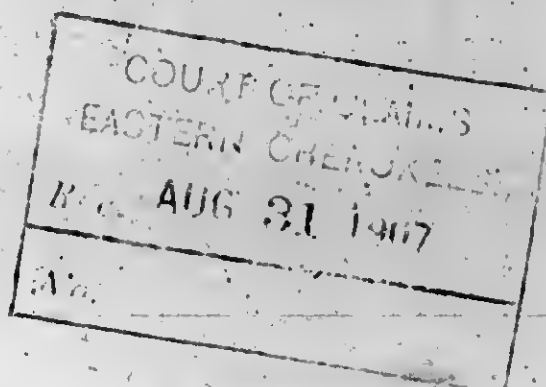 COURT OF CLAIMS
EASTERN CHEROKEES
Rec. AUG 31 1907
No.